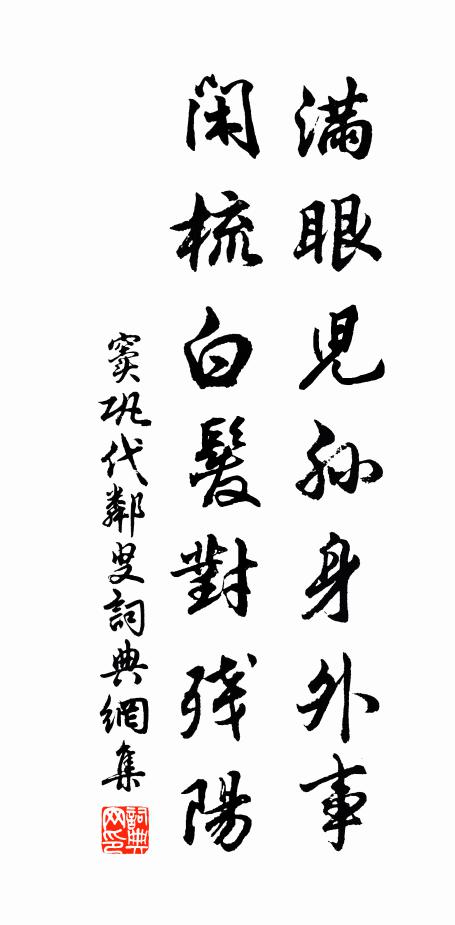 滿眼兒孫身外事
閑梳白髮對殘陽
竇巩代鄰叟詞典網集
詞典网印